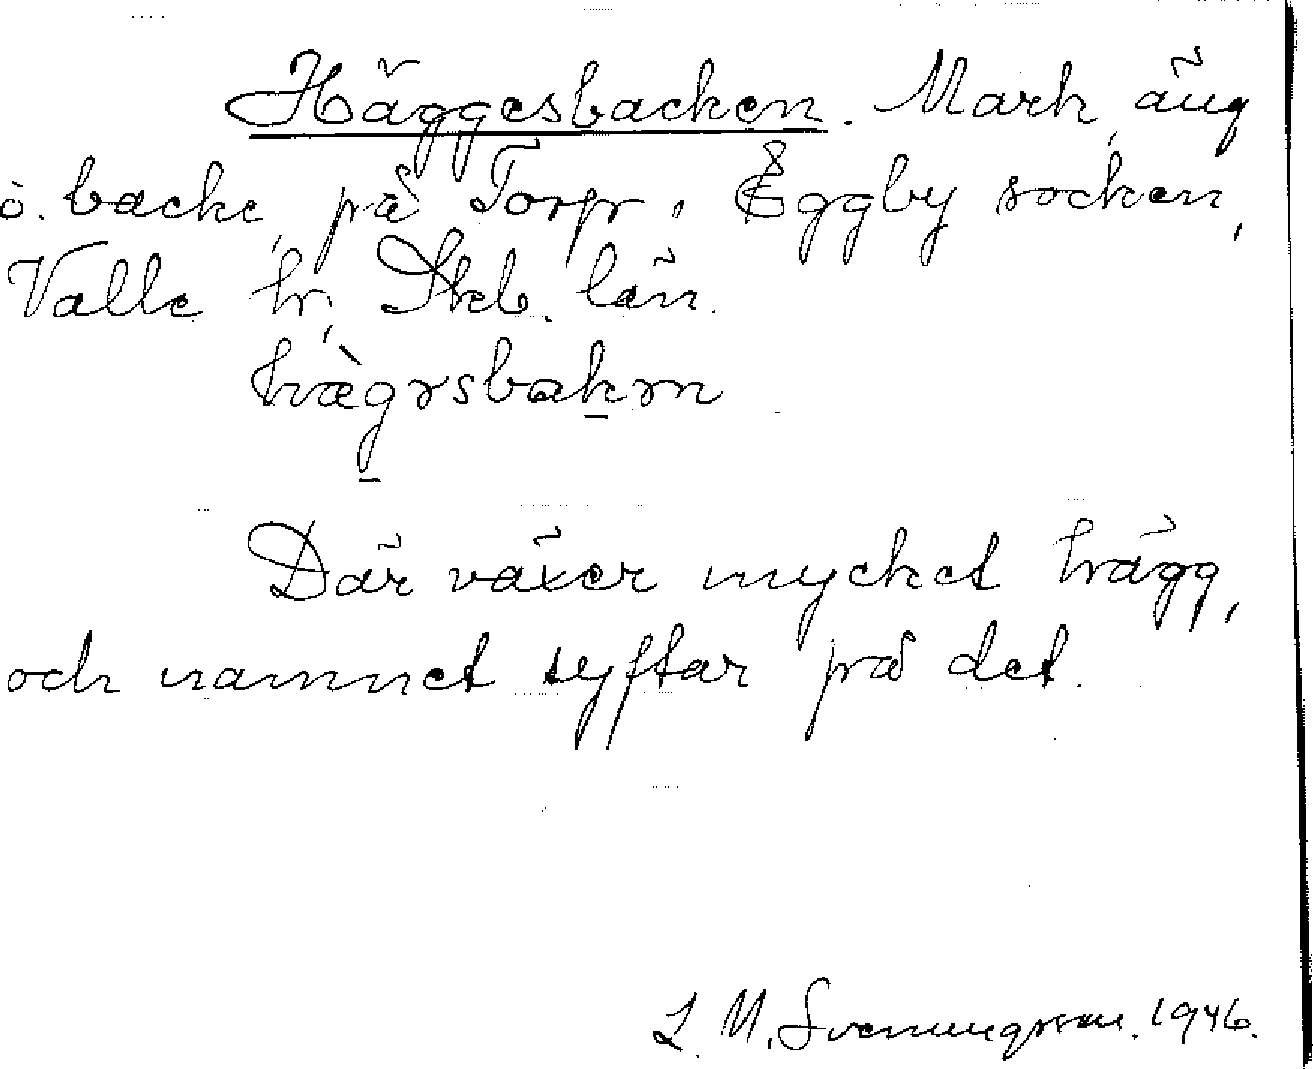 Häggesbacken. Mark, äng
o. backe, på Torp, Eggby socken,
Valle hr, Skb. län.
hæ̀gɤsbakɤn
Där växer mycket hägg,
och namnet syftar på det.
L. M. Svenungsson. 1946.